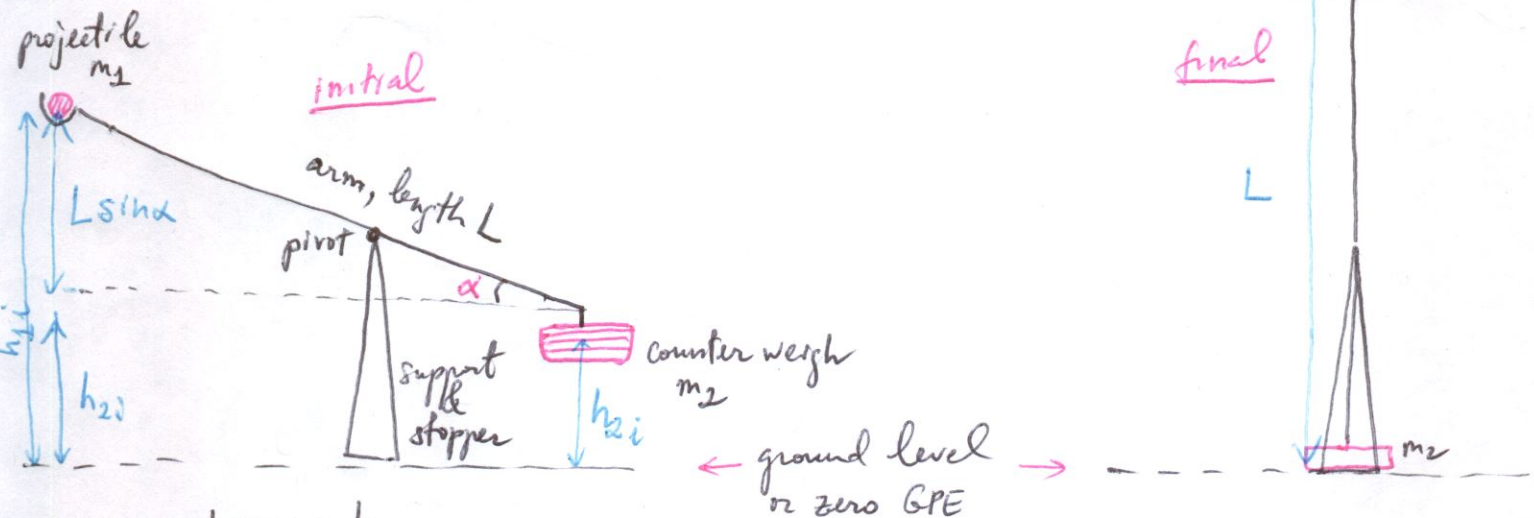 projectile
m1
initial
final
L sinα
arm, length L
pivot
α
L
h1i
h2i
support
&
stopper
counter weigh
m2
h2i
ground level
or zero GPE
m2